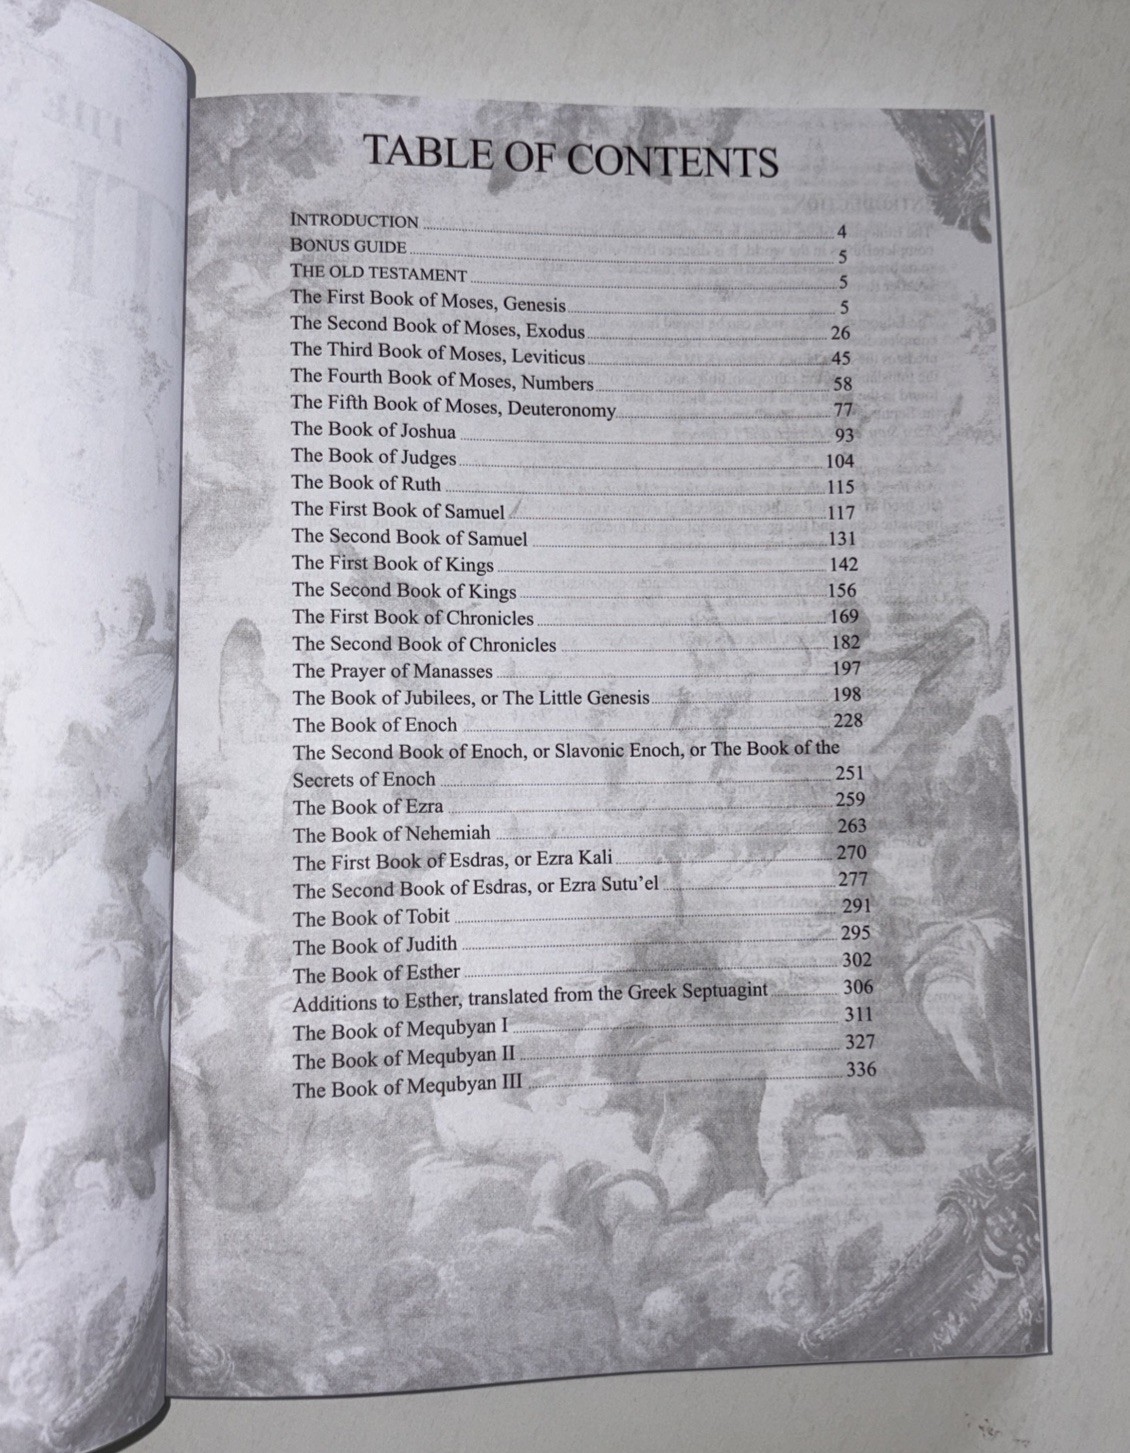 TABLE OF CONTENTS
INTRODUCTION 4
BONUS GUIDE 5
THE OLD TESTAMENT 5
The First Book of Moses, Genesis 5
The Second Book of Moses, Exodus 26
The Third Book of Moses, Leviticus 45
The Fourth Book of Moses, Numbers 58
The Fifth Book of Moses, Deuteronomy 77
The Book of Joshua 93
The Book of Judges 104
The Book of Ruth 115
The First Book of Samuel 117
The Second Book of Samuel 131
The First Book of Kings 142
The Second Book of Kings 156
The First Book of Chronicles 169
The Second Book of Chronicles 182
The Prayer of Manasses 197
The Book of Jubilees, or The Little Genesis 198
The Book of Enoch 228
The Second Book of Enoch, or Slavonic Enoch, or The Book of the
Secrets of Enoch 251
The Book of Ezra 259
The Book of Nehemiah 263
The First Book of Esdras, or Ezra Kali 270
The Second Book of Esdras, or Ezra Sutu’el 277
The Book of Tobit 291
The Book of Judith 295
The Book of Esther 302
Additions to Esther, translated from the Greek Septuagint 306
The Book of Mequbyan I 311
The Book of Mequbyan II 327
The Book of Mequbyan III 336